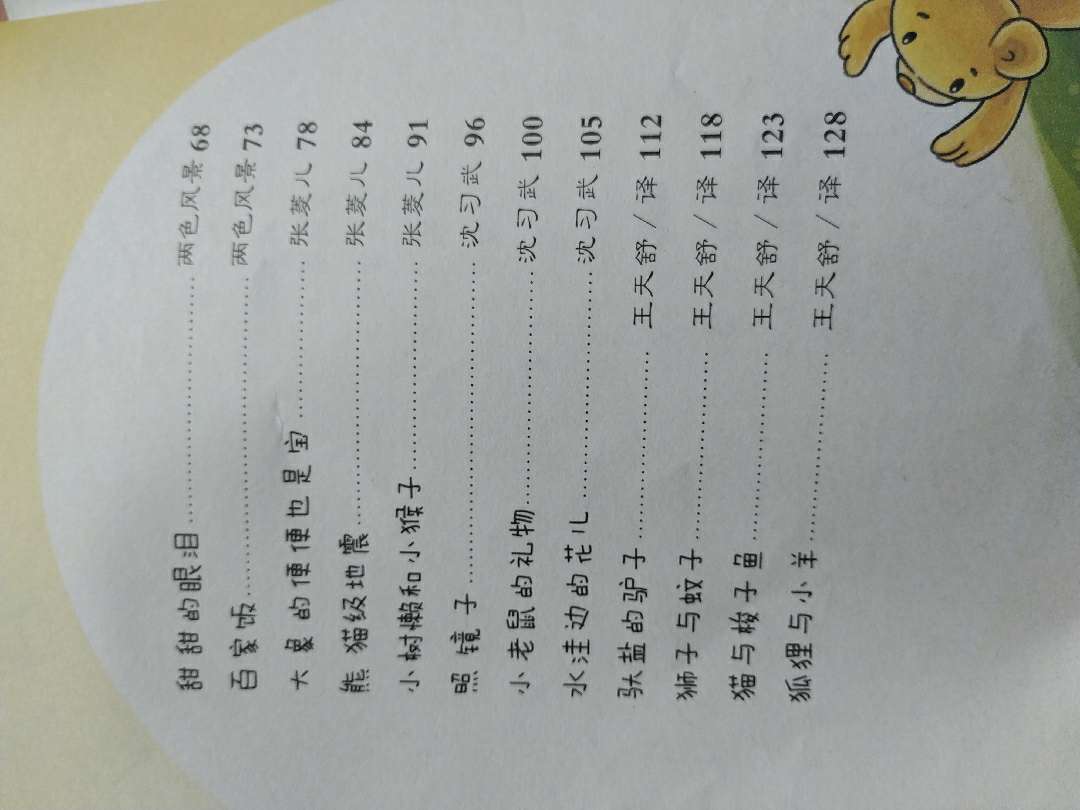 甜甜的眼泪……………………两色风景 68
百家饭……………………………两色风景 73
大象的便便也是宝……………张菱儿 78
熊猫级地震……………………张菱儿 84
小树懒和小猴子………………张菱儿 91
照镜子……………………………沈习武 96
小老鼠的礼物…………………沈习武 100
水洼边的花儿…………………沈习武 105
驮盐的驴子………………王天舒/译 112
狮子与蚊子………………王天舒/译 118
猫与梭子鱼………………王天舒/译 123
狐狸与小羊………………王天舒/译 128